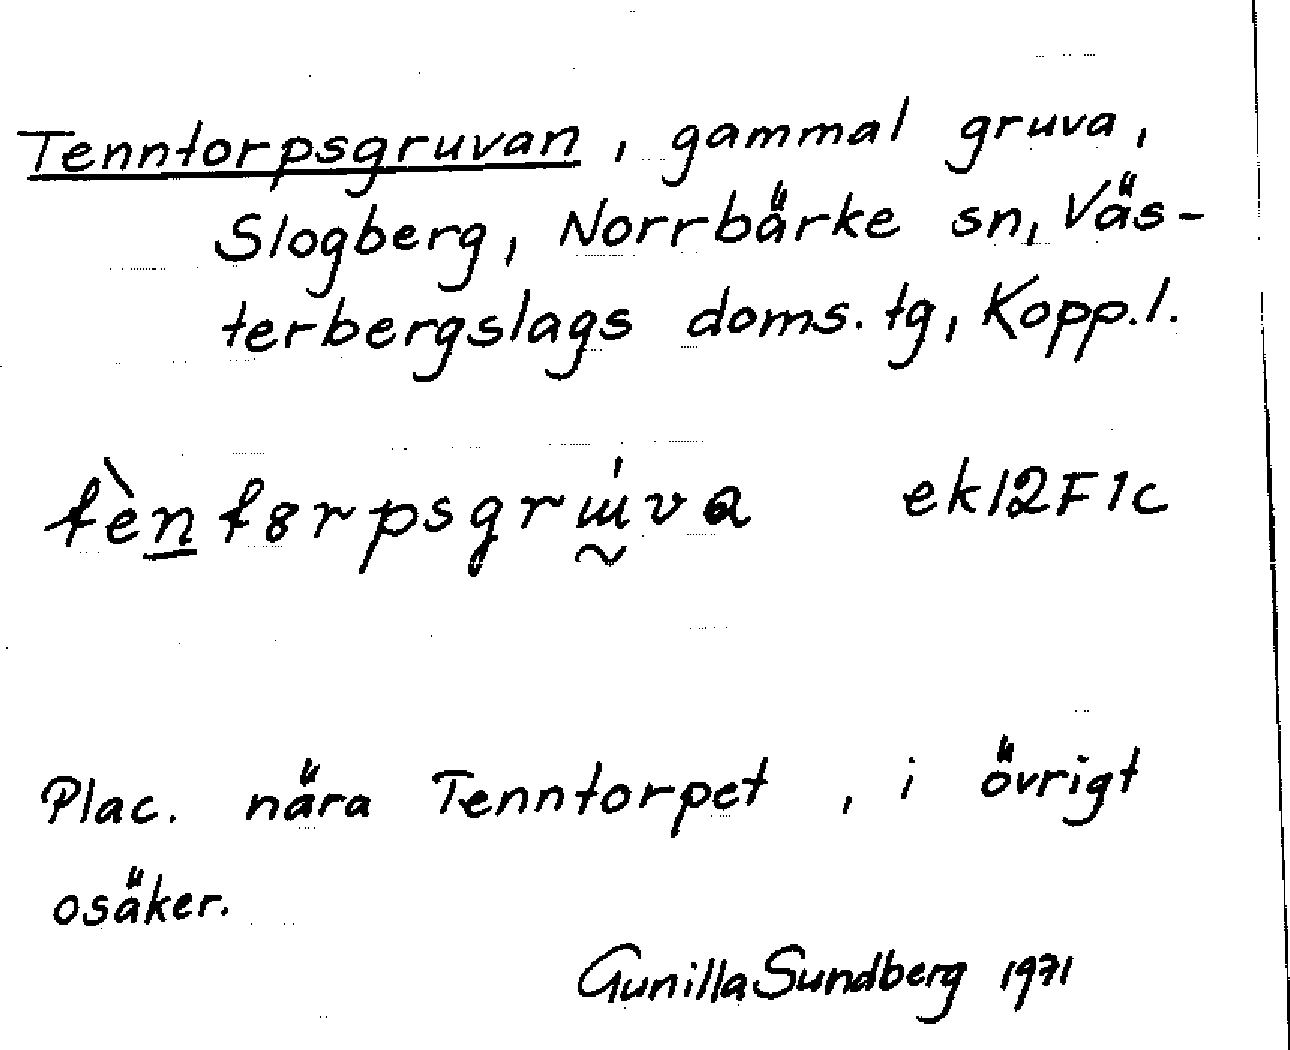 Tenntorpsgruvan, gammal gruva,
Slogberg, Norrbärke sn, Väs-
terbergslags doms. tg, Kopp.l.
ekl2F1c
Plac. nära Tenntorpet, i övrigt
osäker.
Gunilla Sundberg 1971